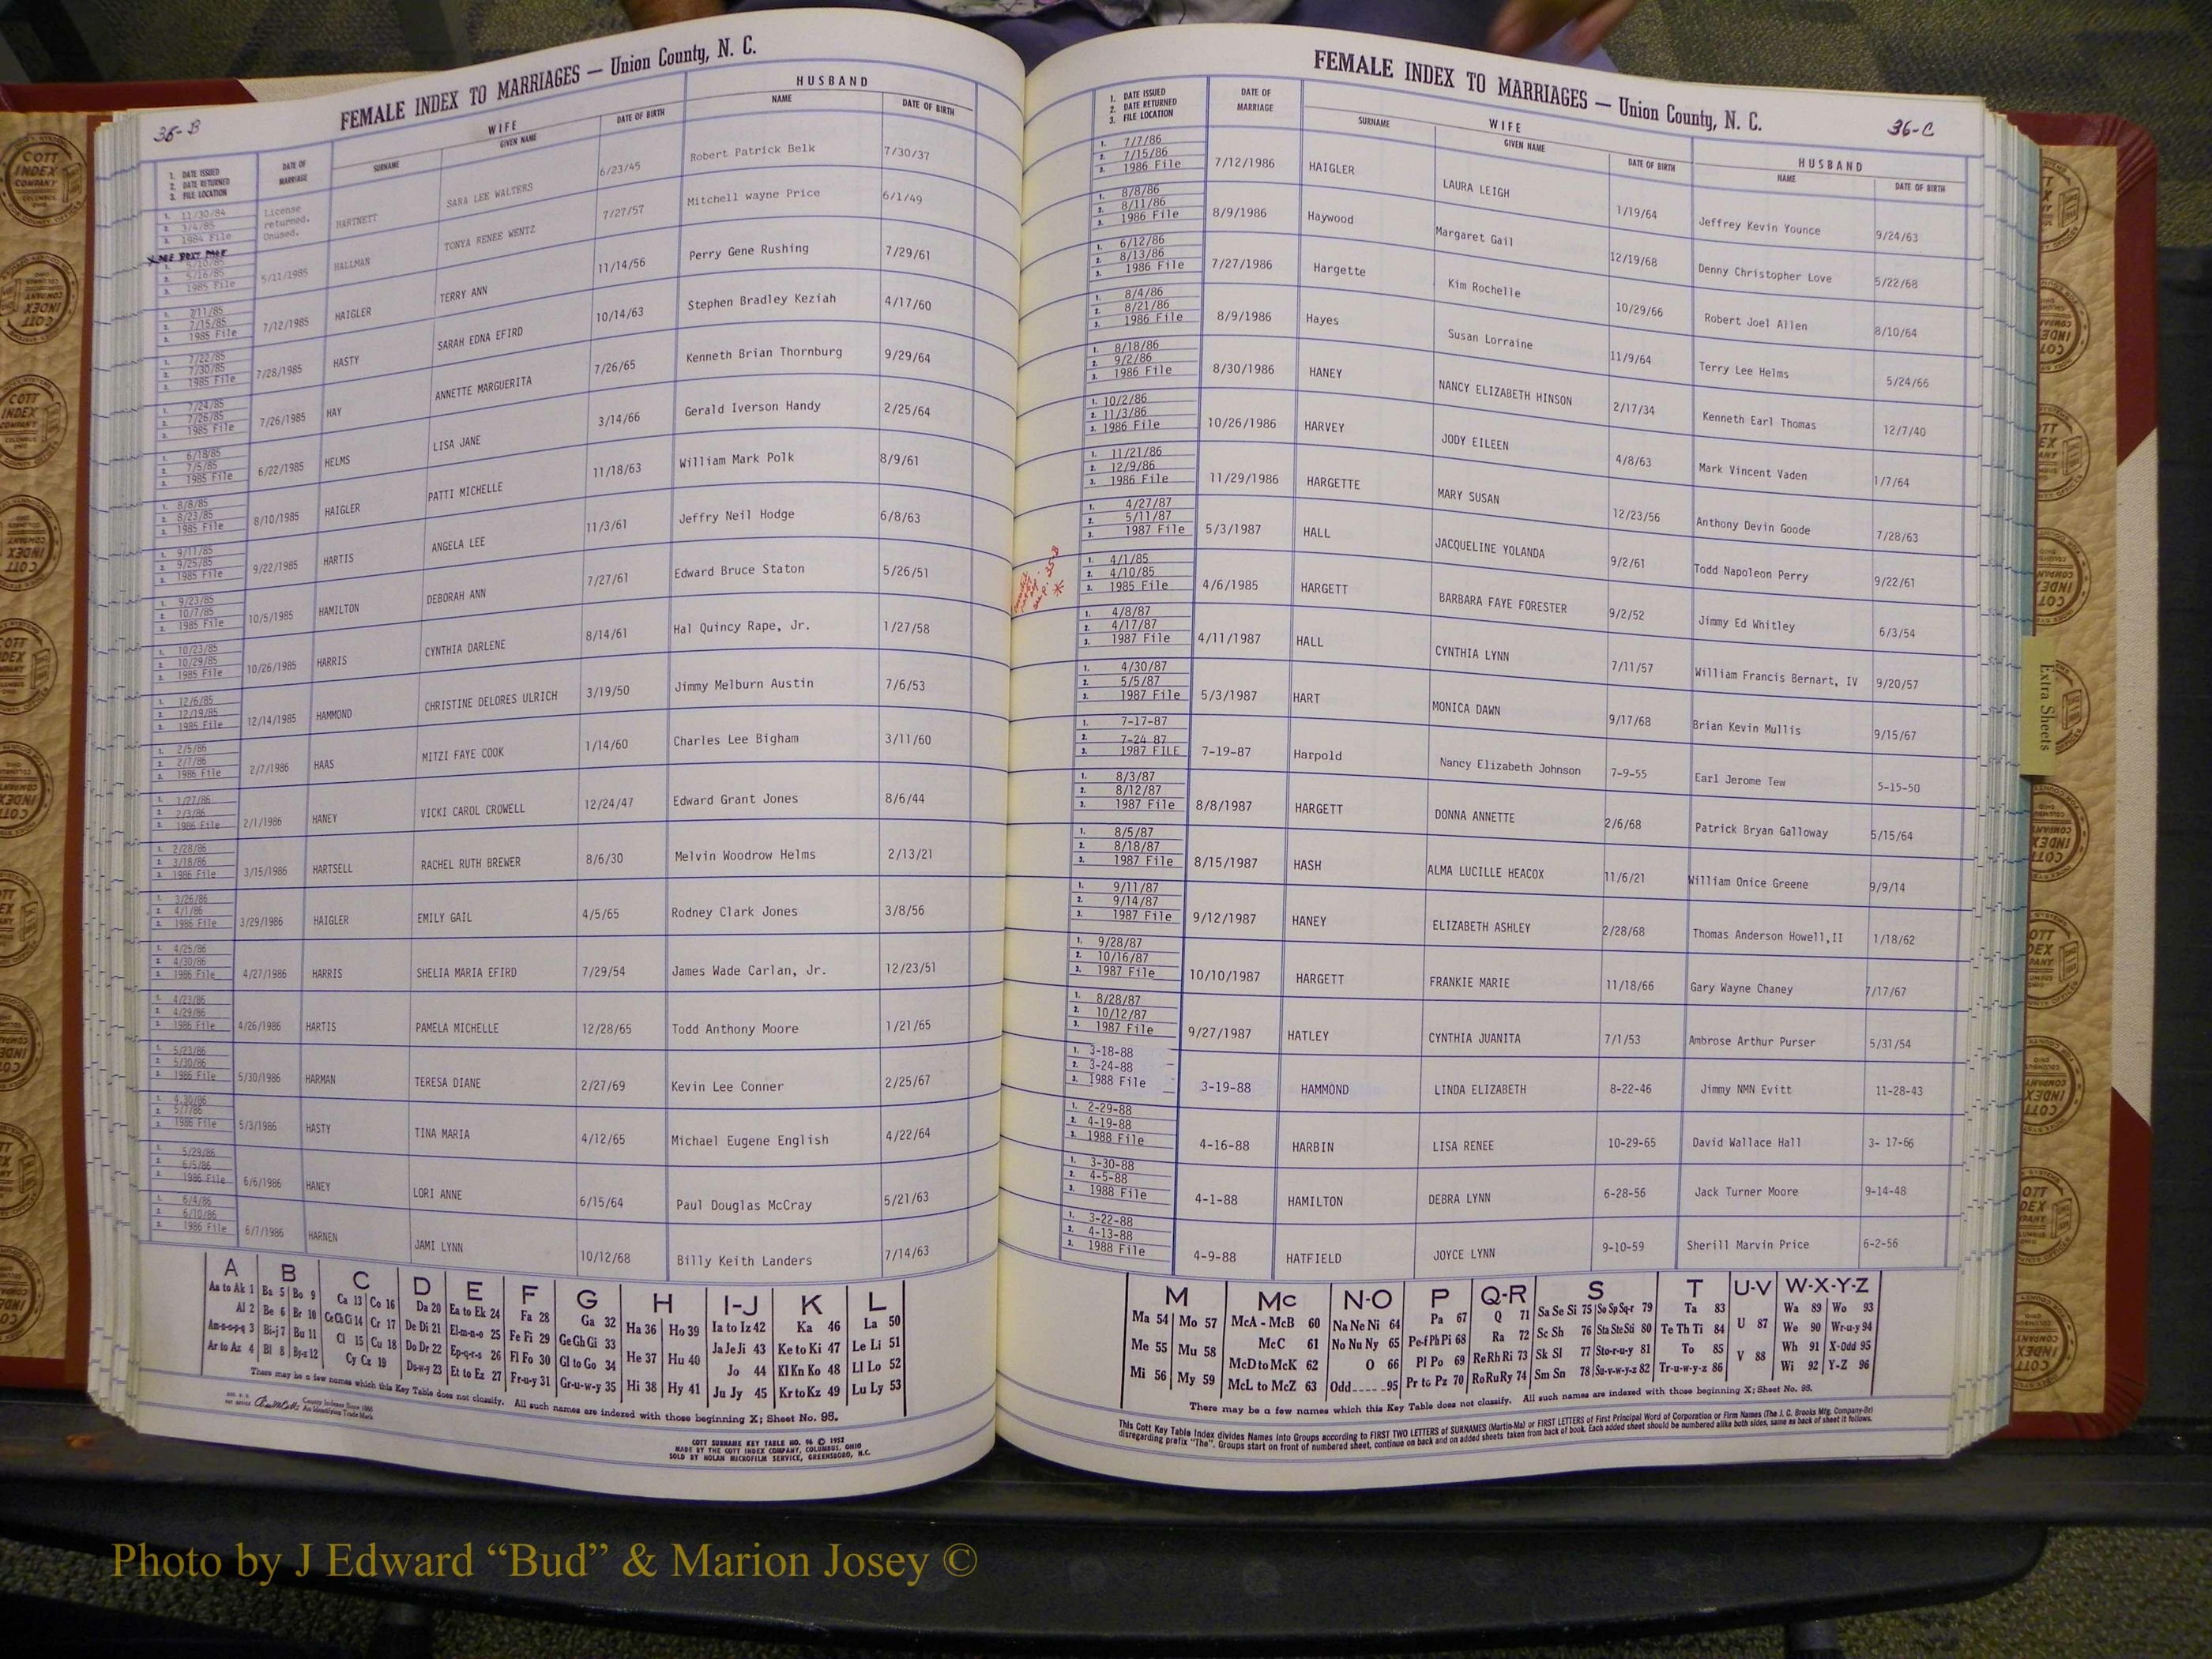 36-B
FEMALE INDEX TO MARRIAGES — Union County, N. C.
1. DATE ISSUED 2. DATE RETURNED 3. FILE LOCATION | DATE OF MARRIAGE | WIFE SURNAME | GIVEN NAME | DATE OF BIRTH | HUSBAND NAME | DATE OF BIRTH
1. 11/30/84 2. 3/4/85 3. 1984 File | License returned. Unused. | HARTNETT | SARA LEE WALTERS | 6/23/45 | Robert Patrick Belk | 7/30/37
5/16/85 1985 File | 5/11/1985 | HALLMAN | TONYA RENEE WENTZ | 7/27/57 | Mitchell wayne Price | 6/1/49
7/11/85 7/15/85 1985 File | 7/12/1985 | HAIGLER | TERRY ANN | 11/14/56 | Perry Gene Rushing | 7/29/61
7/22/85 7/30/85 1985 File | 7/28/1985 | HASTY | SARAH EDNA EFIRD | 10/14/63 | Stephen Bradley Keziah | 4/17/60
7/24/85 7/26/85 1985 File | 7/26/1985 | HAY | ANNETTE MARGUERITA | 7/26/65 | Kenneth Brian Thornburg | 9/29/64
6/18/85 7/5/85 1985 File | 6/22/1985 | HELMS | LISA JANE | 3/14/66 | Gerald Iverson Handy | 2/25/64
8/8/85 8/23/85 1985 File | 8/10/1985 | HAIGLER | PATTI MICHELLE | 11/18/63 | William Mark Polk | 8/9/61
9/11/85 9/25/85 1985 File | 9/22/1985 | HARTIS | ANGELA LEE | 11/3/61 | Jeffry Neil Hodge | 6/8/63
9/23/85 10/7/85 1985 File | 10/5/1985 | HAMILTON | DEBORAH ANN | 7/27/61 | Edward Bruce Staton | 5/26/51
10/23/85 10/29/85 1985 File | 10/26/1985 | HARRIS | CYNTHIA DARLENE | 8/14/61 | Hal Quincy Rape, Jr. | 1/27/58
12/6/85 12/19/85 1985 File | 12/14/1985 | HAMMOND | CHRISTINE DELORES ULRICH | 3/19/50 | Jimmy Melburn Austin | 7/6/53
2/5/86 2/7/86 1986 File | 2/7/1986 | HAAS | MITZI FAYE COOK | 1/14/60 | Charles Lee Bigham | 3/11/60
1/27/86 2/3/86 1986 File | 2/1/1986 | HANEY | VICKI CAROL CROWELL | 12/24/47 | Edward Grant Jones | 8/6/44
2/28/86 3/18/86 1986 File | 3/15/1986 | HARTSELL | RACHEL RUTH BREWER | 8/6/30 | Melvin Woodrow Helms | 2/13/21
3/26/86 4/1/86 1986 File | 3/29/1986 | HAIGLER | EMILY GAIL | 4/5/65 | Rodney Clark Jones | 3/8/56
4/25/86 4/30/86 1986 File | 4/27/1986 | HARRIS | SHELIA MARIA EFIRD | 7/29/54 | James Wade Carlan, Jr. | 12/23/51
4/23/86 4/29/86 1986 File | 4/26/1986 | HARTIS | PAMELA MICHELLE | 12/28/65 | Todd Anthony Moore | 1/21/65
5/23/86 5/30/86 1986 File | 5/30/1986 | HARMAN | TERESA DIANE | 2/27/69 | Kevin Lee Conner | 2/25/67
4.30/86 5/7/86 1986 File | 5/3/1986 | HASTY | TINA MARIA | 4/12/65 | Michael Eugene English | 4/22/64
5/29/86 6/5/86 1986 File | 6/6/1986 | HANEY | LORI ANNE | 6/15/64 | Paul Douglas McCray | 5/21/63
6/4/86 6/10/86 1986 File | 6/7/1986 | HARNEN | JAMI LYNN | 10/12/68 | Billy Keith Landers | 7/14/63
A B C D E F G H I-J K L
Aa to Ak 1 | Ba 5 | Bo 9 | Ca 13 | Co 16 | Da 20 | Ea to Ek 24 | Fa 28 | Ga 32 | Ha 36 | Ho 39 | Ia to Iz 42 | Ka 46 | La 50
Al 2 | Be 6 | Br 10 | Ce Ch Ci 14 | Cr 17 | De Di 21 | El-m-n-o 25 | Fe Fi 29 | Ge Gh Gi 33 | He 37 | Hu 40 | Ja Je Ji 43 | Ke to Ki 47 | Le Li 51
Am-n-o-p-q 3 | Bi-j 7 | Bu 11 | Cl 15 | Cu 18 | Do Dr 22 | Ep-q-r-s 26 | Fl Fo 30 | Gl to Go 34 | Hi 38 | Hy 41 | Jo 44 | Kl Kn Ko 48 | Ll Lo 52
Ar to Az 4 | Bl 8 | By-z 12 | Cy Cz 19 | Du-w-y 23 | Et to Ez 27 | Fr-u-y 31 | Gr-u-w-y 35 | Ju Jy 45 | Kr to Kz 49 | Lu Ly 53
There may be a few names which this Key Table does not classify. All such names are indexed with those beginning X; Sheet No. 95.
County Indexes Since 1888
An Identifying Trade Mark
COTT SURNAME KEY TABLE NO. 96 © 1952
MADE BY THE COTT INDEX COMPANY, COLUMBUS, OHIO
SOLD BY NOLAN MICROFILM SERVICE, GREENSBORO, N.C.
FEMALE INDEX TO MARRIAGES — Union County, N. C.
36-C
1. DATE ISSUED 2. DATE RETURNED 3. FILE LOCATION | DATE OF MARRIAGE | WIFE SURNAME | GIVEN NAME | DATE OF BIRTH | HUSBAND NAME | DATE OF BIRTH
1. 7/7/86 2. 7/15/86 3. 1986 File | 7/12/1986 | HAIGLER | LAURA LEIGH | 1/19/64 | Jeffrey Kevin Younce | 9/24/63
8/8/86 8/11/86 1986 File | 8/9/1986 | Haywood | Margaret Gail | 12/19/68 | Denny Christopher Love | 5/22/68
6/12/86 8/13/86 1986 File | 7/27/1986 | Hargette | Kim Rochelle | 10/29/66 | Robert Joel Allen | 8/10/64
8/4/86 8/21/86 1986 File | 8/9/1986 | Hayes | Susan Lorraine | 11/9/64 | Terry Lee Helms | 5/24/66
8/18/86 9/2/86 1986 File | 8/30/1986 | HANEY | NANCY ELIZABETH HINSON | 2/17/34 | Kenneth Earl Thomas | 12/7/40
10/2/86 11/3/86 1986 File | 10/26/1986 | HARVEY | JODY EILEEN | 4/8/63 | Mark Vincent Vaden | 1/7/64
11/21/86 12/9/86 1986 File | 11/29/1986 | HARGETTE | MARY SUSAN | 12/23/56 | Anthony Devin Goode | 7/28/63
4/27/87 5/11/87 1987 File | 5/3/1987 | HALL | JACQUELINE YOLANDA | 9/2/61 | Todd Napoleon Perry | 9/22/61
see p. 35-B *
4/1/85 4/10/85 1985 File | 4/6/1985 | HARGETT | BARBARA FAYE FORESTER | 9/2/52 | Jimmy Ed Whitley | 6/3/54
4/8/87 4/17/87 1987 File | 4/11/1987 | HALL | CYNTHIA LYNN | 7/11/57 | William Francis Bernart, IV | 9/20/57
4/30/87 5/5/87 1987 File | 5/3/1987 | HART | MONICA DAWN | 9/17/68 | Brian Kevin Mullis | 9/15/67
7-17-87 7-24 87 1987 FILE | 7-19-87 | Harpold | Nancy Elizabeth Johnson | 7-9-55 | Earl Jerome Tew | 5-15-50
8/3/87 8/12/87 1987 File | 8/8/1987 | HARGETT | DONNA ANNETTE | 2/6/68 | Patrick Bryan Galloway | 5/15/64
8/5/87 8/18/87 1987 File | 8/15/1987 | HASH | ALMA LUCILLE HEACOX | 11/6/21 | William Onice Greene | 9/9/14
9/11/87 9/14/87 1987 File | 9/12/1987 | HANEY | ELIZABETH ASHLEY | 2/28/68 | Thomas Anderson Howell,II | 1/18/62
9/28/87 10/16/87 1987 File | 10/10/1987 | HARGETT | FRANKIE MARIE | 11/18/66 | Gary Wayne Chaney | 7/17/67
8/28/87 10/12/87 1987 File | 9/27/1987 | HATLEY | CYNTHIA JUANITA | 7/1/53 | Ambrose Arthur Purser | 5/31/54
3-18-88 3-24-88 1988 File | 3-19-88 | HAMMOND | LINDA ELIZABETH | 8-22-46 | Jimmy NMN Evitt | 11-28-43
2-29-88 4-19-88 1988 File | 4-16-88 | HARBIN | LISA RENEE | 10-29-65 | David Wallace Hall | 3- 17-66
3-30-88 4-5-88 1988 File | 4-1-88 | HAMILTON | DEBRA LYNN | 6-28-56 | Jack Turner Moore | 9-14-48
3-22-88 4-13-88 1988 File | 4-9-88 | HATFIELD | JOYCE LYNN | 9-10-59 | Sherill Marvin Price | 6-2-56
M Mc N-O P Q-R S T U-V W-X-Y-Z
Ma 54 | Mo 57 | McA - McB 60 | Na Ne Ni 64 | Pa 67 | Q 71 | Sa Se Si 75 | So Sp Sq-r 79 | Ta 83 | U 87 | Wa 89 | Wo 93
Me 55 | Mu 58 | McC 61 | No Nu Ny 65 | Pe-f Ph Pi 68 | Ra 72 | Sc Sh 76 | Sta Ste Sti 80 | Te Th Ti 84 | V 88 | We 90 | Wr-u-y 94
Mi 56 | My 59 | McD to McK 62 | O 66 | Pl Po 69 | Re Rh Ri 73 | Sk Sl 77 | Sto-r-u-y 81 | To 85 | Wh 91 | X-Odd 95
McL to McZ 63 | Odd 95 | Pr to Pz 70 | Ro Ru Ry 74 | Sm Sn 78 | Su-v-w-y-z 82 | Tr-u-w-y-z 86 | Wi 92 | Y-Z 96
There may be a few names which this Key Table does not classify. All such names are indexed with those beginning X; Sheet No. 95.
This Cott Key Table Index divides Names into Groups according to FIRST TWO LETTERS of SURNAMES (Martin-Ma) or FIRST LETTERS of First Principal Word of Corporation or Firm Names (The J. C. Brooks Mfg. Company-Br)
disregarding prefix "The". Groups start on front of numbered sheet, continue on back and on added sheets taken from back of book. Each added sheet should be numbered alike both sides, same as back of sheet it follows.
Extra Sheets
COTT
INDEX
COMPANY
Photo by J Edward “Bud” & Marion Josey ©